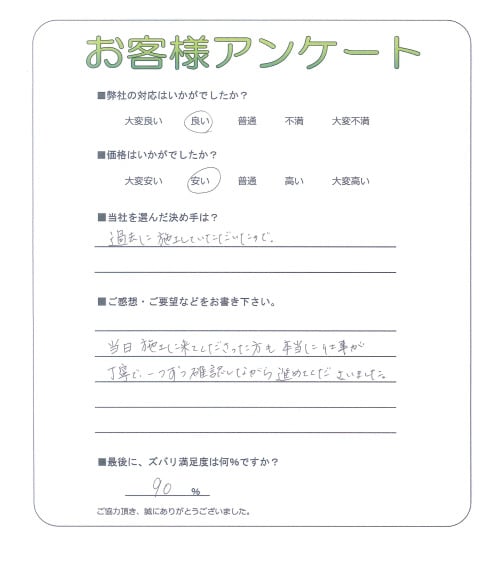 お客様アンケート
■弊社の対応はいかがでしたか？
大変良い 良い 普通 不満 大変不満
■価格はいかがでしたか？
大変安い 安い 普通 高い 大変高い
■当社を選んだ決め手は？
過去に施工していただいたので。
■ご感想・ご要望などをお書き下さい。
当日施工に来てくださった方も本当に仕事が
丁寧で、一つずつ確認しながら進めてくださいました。
■最後に、ズバリ満足度は何％ですか？
90 ％
ご協力頂き、誠にありがとうございました。